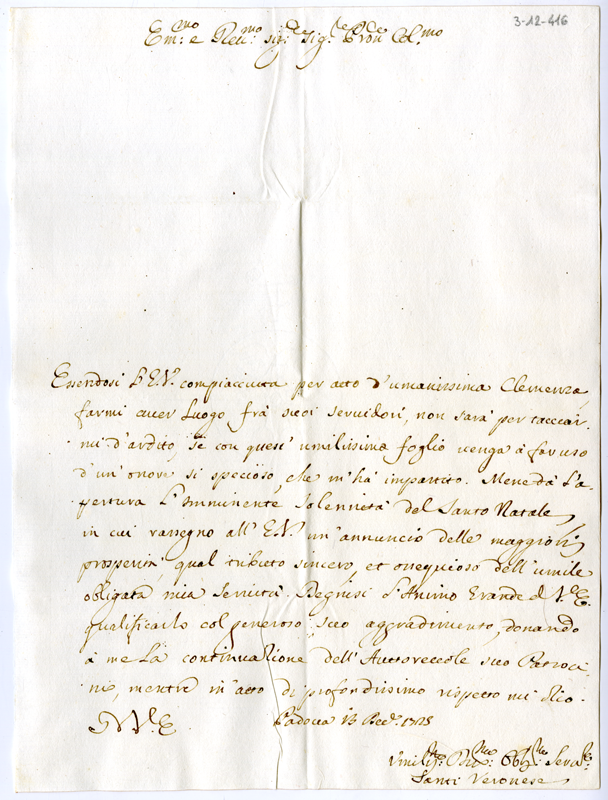 3-12-416
Em:mo e Reu:mo Sig:r Sig:r Pron Col:mo
Essendosi l'E.V. compiacciuta per atto d'umanissima Clemenza,
farmi auer Luogo frà suoi seruidori, non sarà per tacciar-
mi d'ardito, se con quest' umilissimo foglio uenga à far uso
d'un' onore si specioso, che m'hà impartito. Mene dà l'a-
pertura l'Imminente Solennità del Santo Natale,
in cui rassegno all' E.V. un' annuncio delle maggiori
prosperità, qual tributo sincero, et ossequioso dell' umile
obligata mia Seruitù. Degnisi l'Animo Grande d V.E.
qualificarlo col generoso suo aggradimento, donando
à me La continuazione dell' Autoreuole suo Patroci-
nio, mentre in' atto di profondissimo rispetto mi dico.
D V.E.
Padoua 13 Dec. 1725
Umiliss: Obl:mo Seru:
Santi Veronese